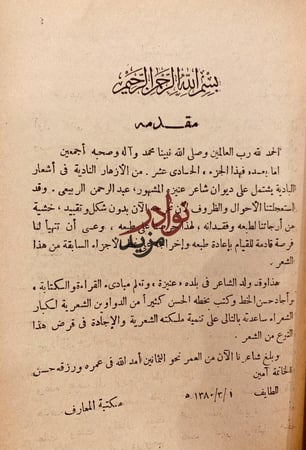 بسم الله الرحمن الرحيم
مقدمه
الحمد لله رب العالمين وصلى الله نبينا محمد وآله وصحبه أجمعين
اما بعد فهذا الجزء الحادى عشر من الازهار النادية فى أشعار
البادية يشتمل على ديوان شاعر عنيزة المشهور عبد الرحمن الربيعى . وقد
استعجلتنا الأحوال والظروف الآن بدون شكل وتقييد ، خشية
من أرجائنا لطبعه وفقده طبعه . وعسى أن تتهيأ لنا
فرصة قادمة للقيام بإعادة طبعه وإخراجه لأجزاء السابقة من هذا
الشعر .
نوادر
مريد
هذا وقد ولد الشاعر فى بلده « عنيزة » وتعلم مبادىء القراءة والكتابة »
وأجاد حسن الخط وكتب بخطه الحسن كثيراً من الدواوين الشعرية لكبار
الشعراء ساعدته بالتالى على تنمية ملكته الشعرية والإجادة فى قرض هذا
النوع من الشعر .
وبلغ شاعرنا الآن من العمر نحو الثمانين أمد الله فى عمره ورزقه حسن
الخاتمة آمين
الطايف ١ /٣/ ١٣٨٠ ه
مكتبة المعارف